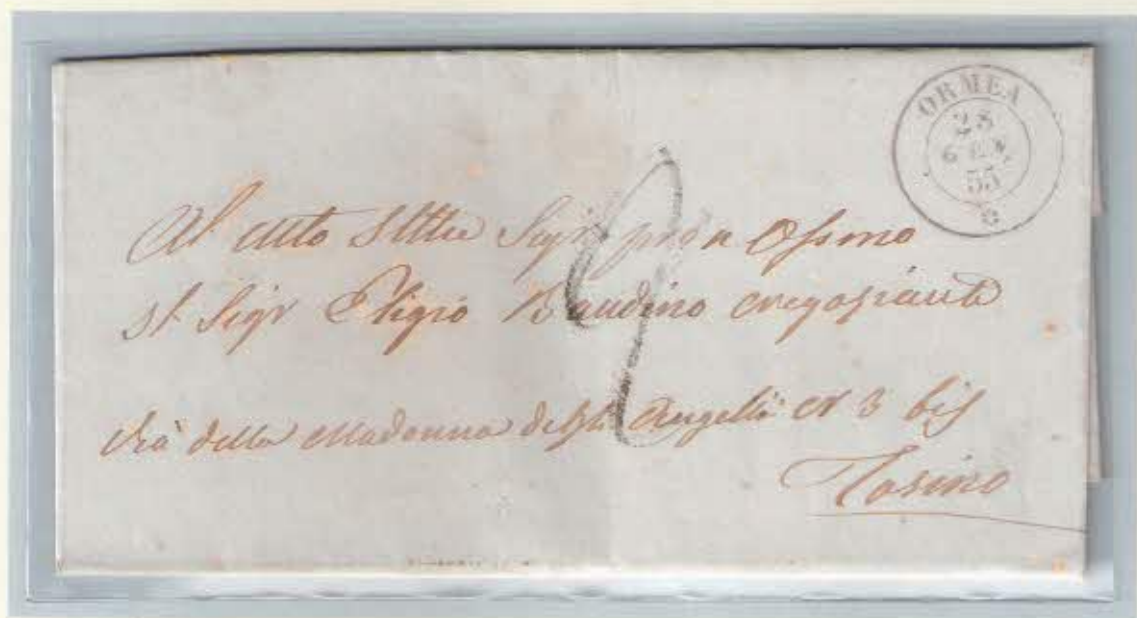 ORMEA
28
GEN
55
Al Molto Illtre Sigr pron Ossmo
Il Sigr Eligio Baudino negoziante
Via della Madonna degli Angelli N 3 bis
Torino